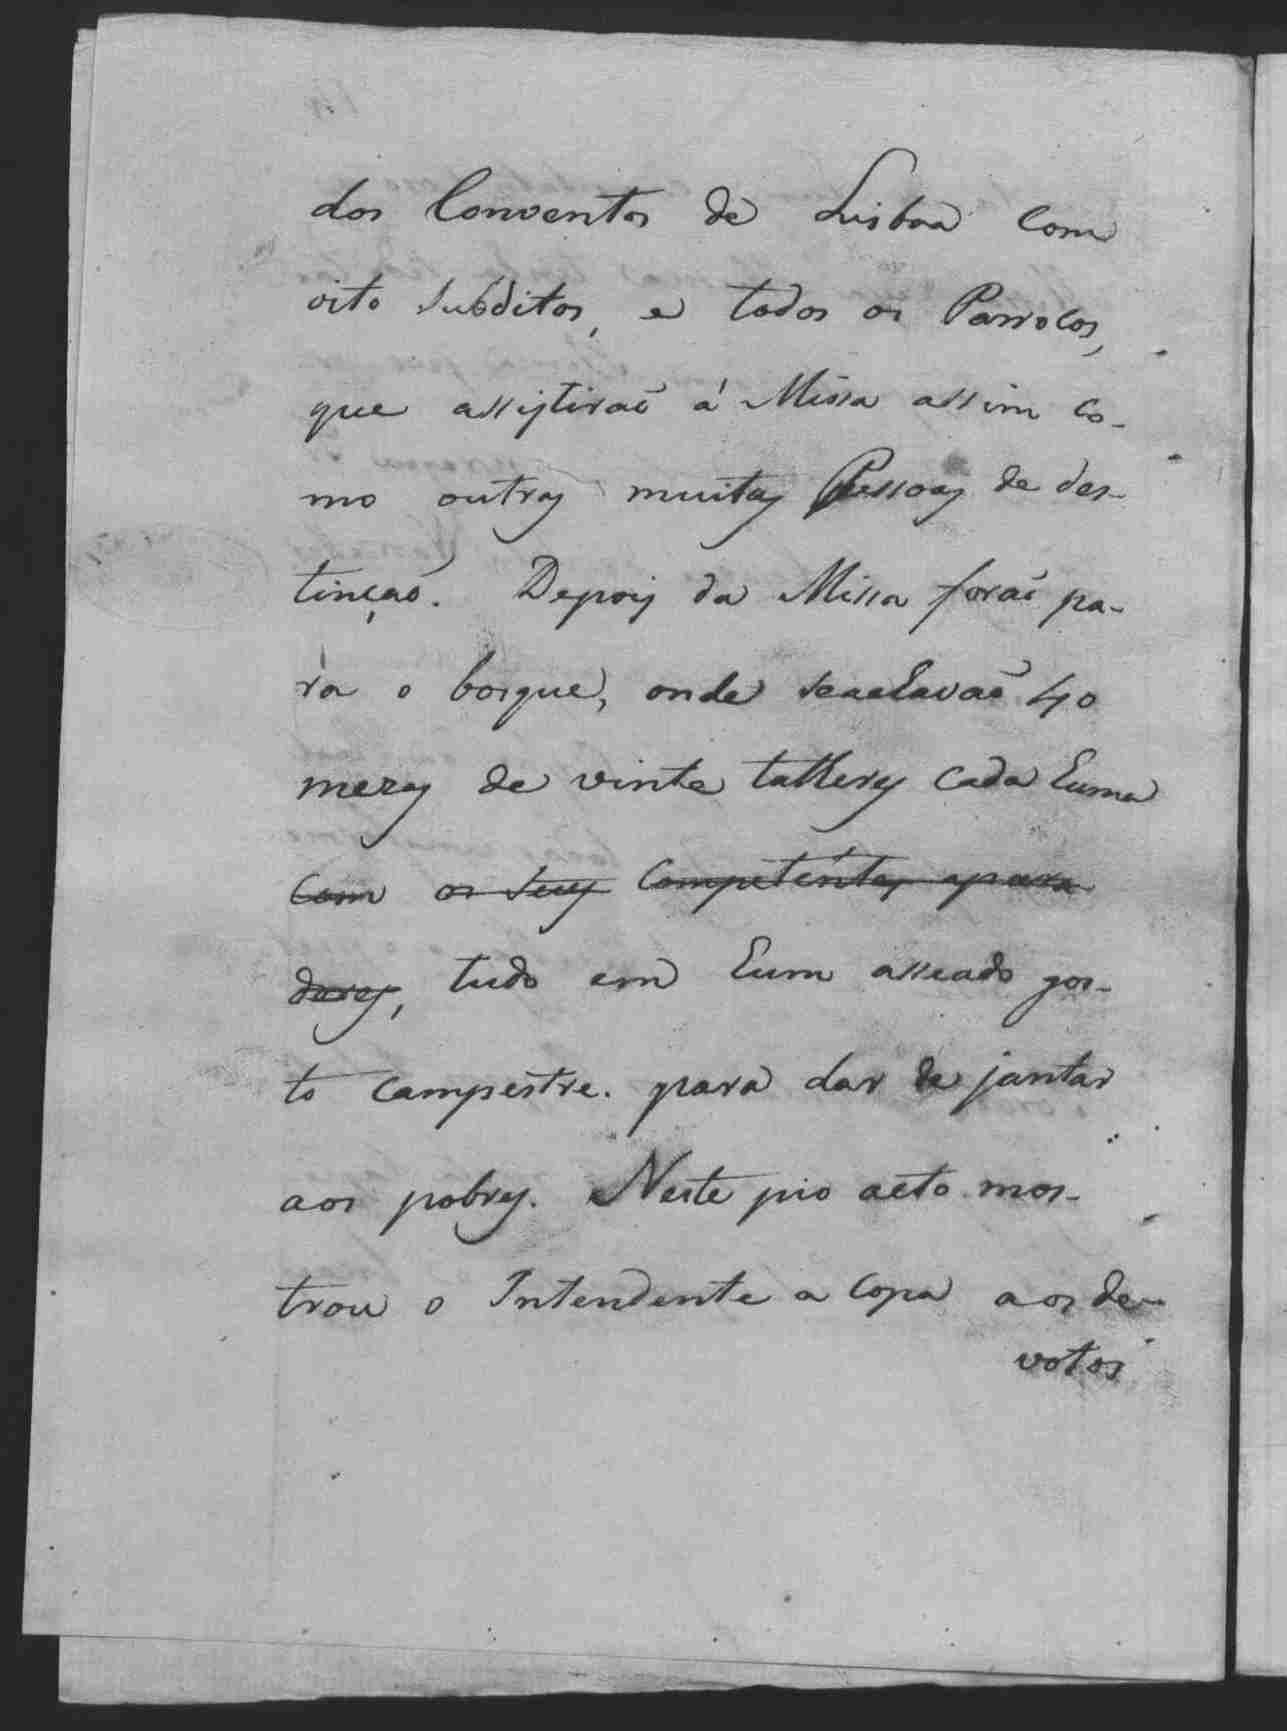 dos Conventos de Lisboa com
oito subditos, e todos os Parrocos,
que assistiraõ á Missa assim co-
mo outras muitas Pessoas de des-
tinçaõ. Depois da Missa foraõ pa-
ra o bosque, onde seachavaõ 40
mezas de vinte talheres cada huma
com os seus competentes apara
dores, tudo em hum asseado gos-
to campestre. para dar de jantar
aos pobres. Neste pio acto mos-
trou o Intendente a copa aos de-
votos